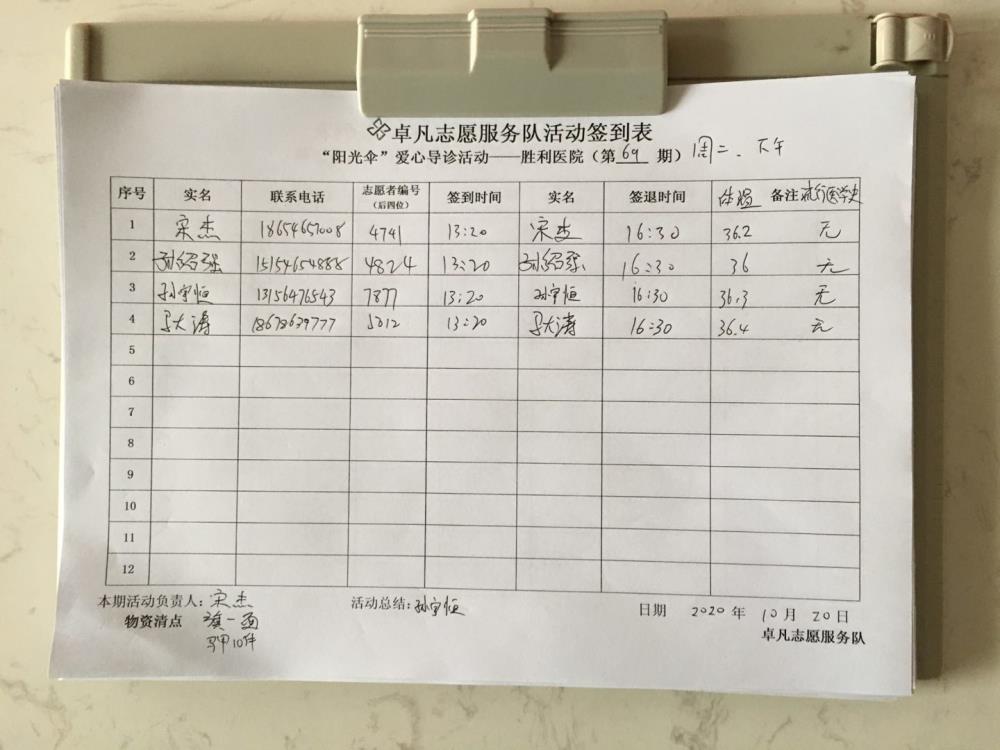 卓凡志愿服务队活动签到表
“阳光伞”爱心导诊活动——胜利医院（第 69 期） 周二、下午
序号 实名 联系电话 志愿者编号（后四位） 签到时间 实名 签退时间 体温 备注 流行医学史
1 宋杰 18654651008 4741 13:20 宋杰 16:30 36.2 无
2 孙绍强 15154654888 4824 13:20 孙绍强 16:30 36 无
3 孙宇恒 13156476543 7877 13:20 孙宇恒 16:30 36.3 无
4 马大涛 18678639777 5212 13:20 马大涛 16:30 36.4 无
5
6
7
8
9
10
11
12
本期活动负责人：宋杰 活动总结：孙宇恒 日期 2020 年 10 月 20 日
物资清点 旗一面 卓凡志愿服务队
马甲10件